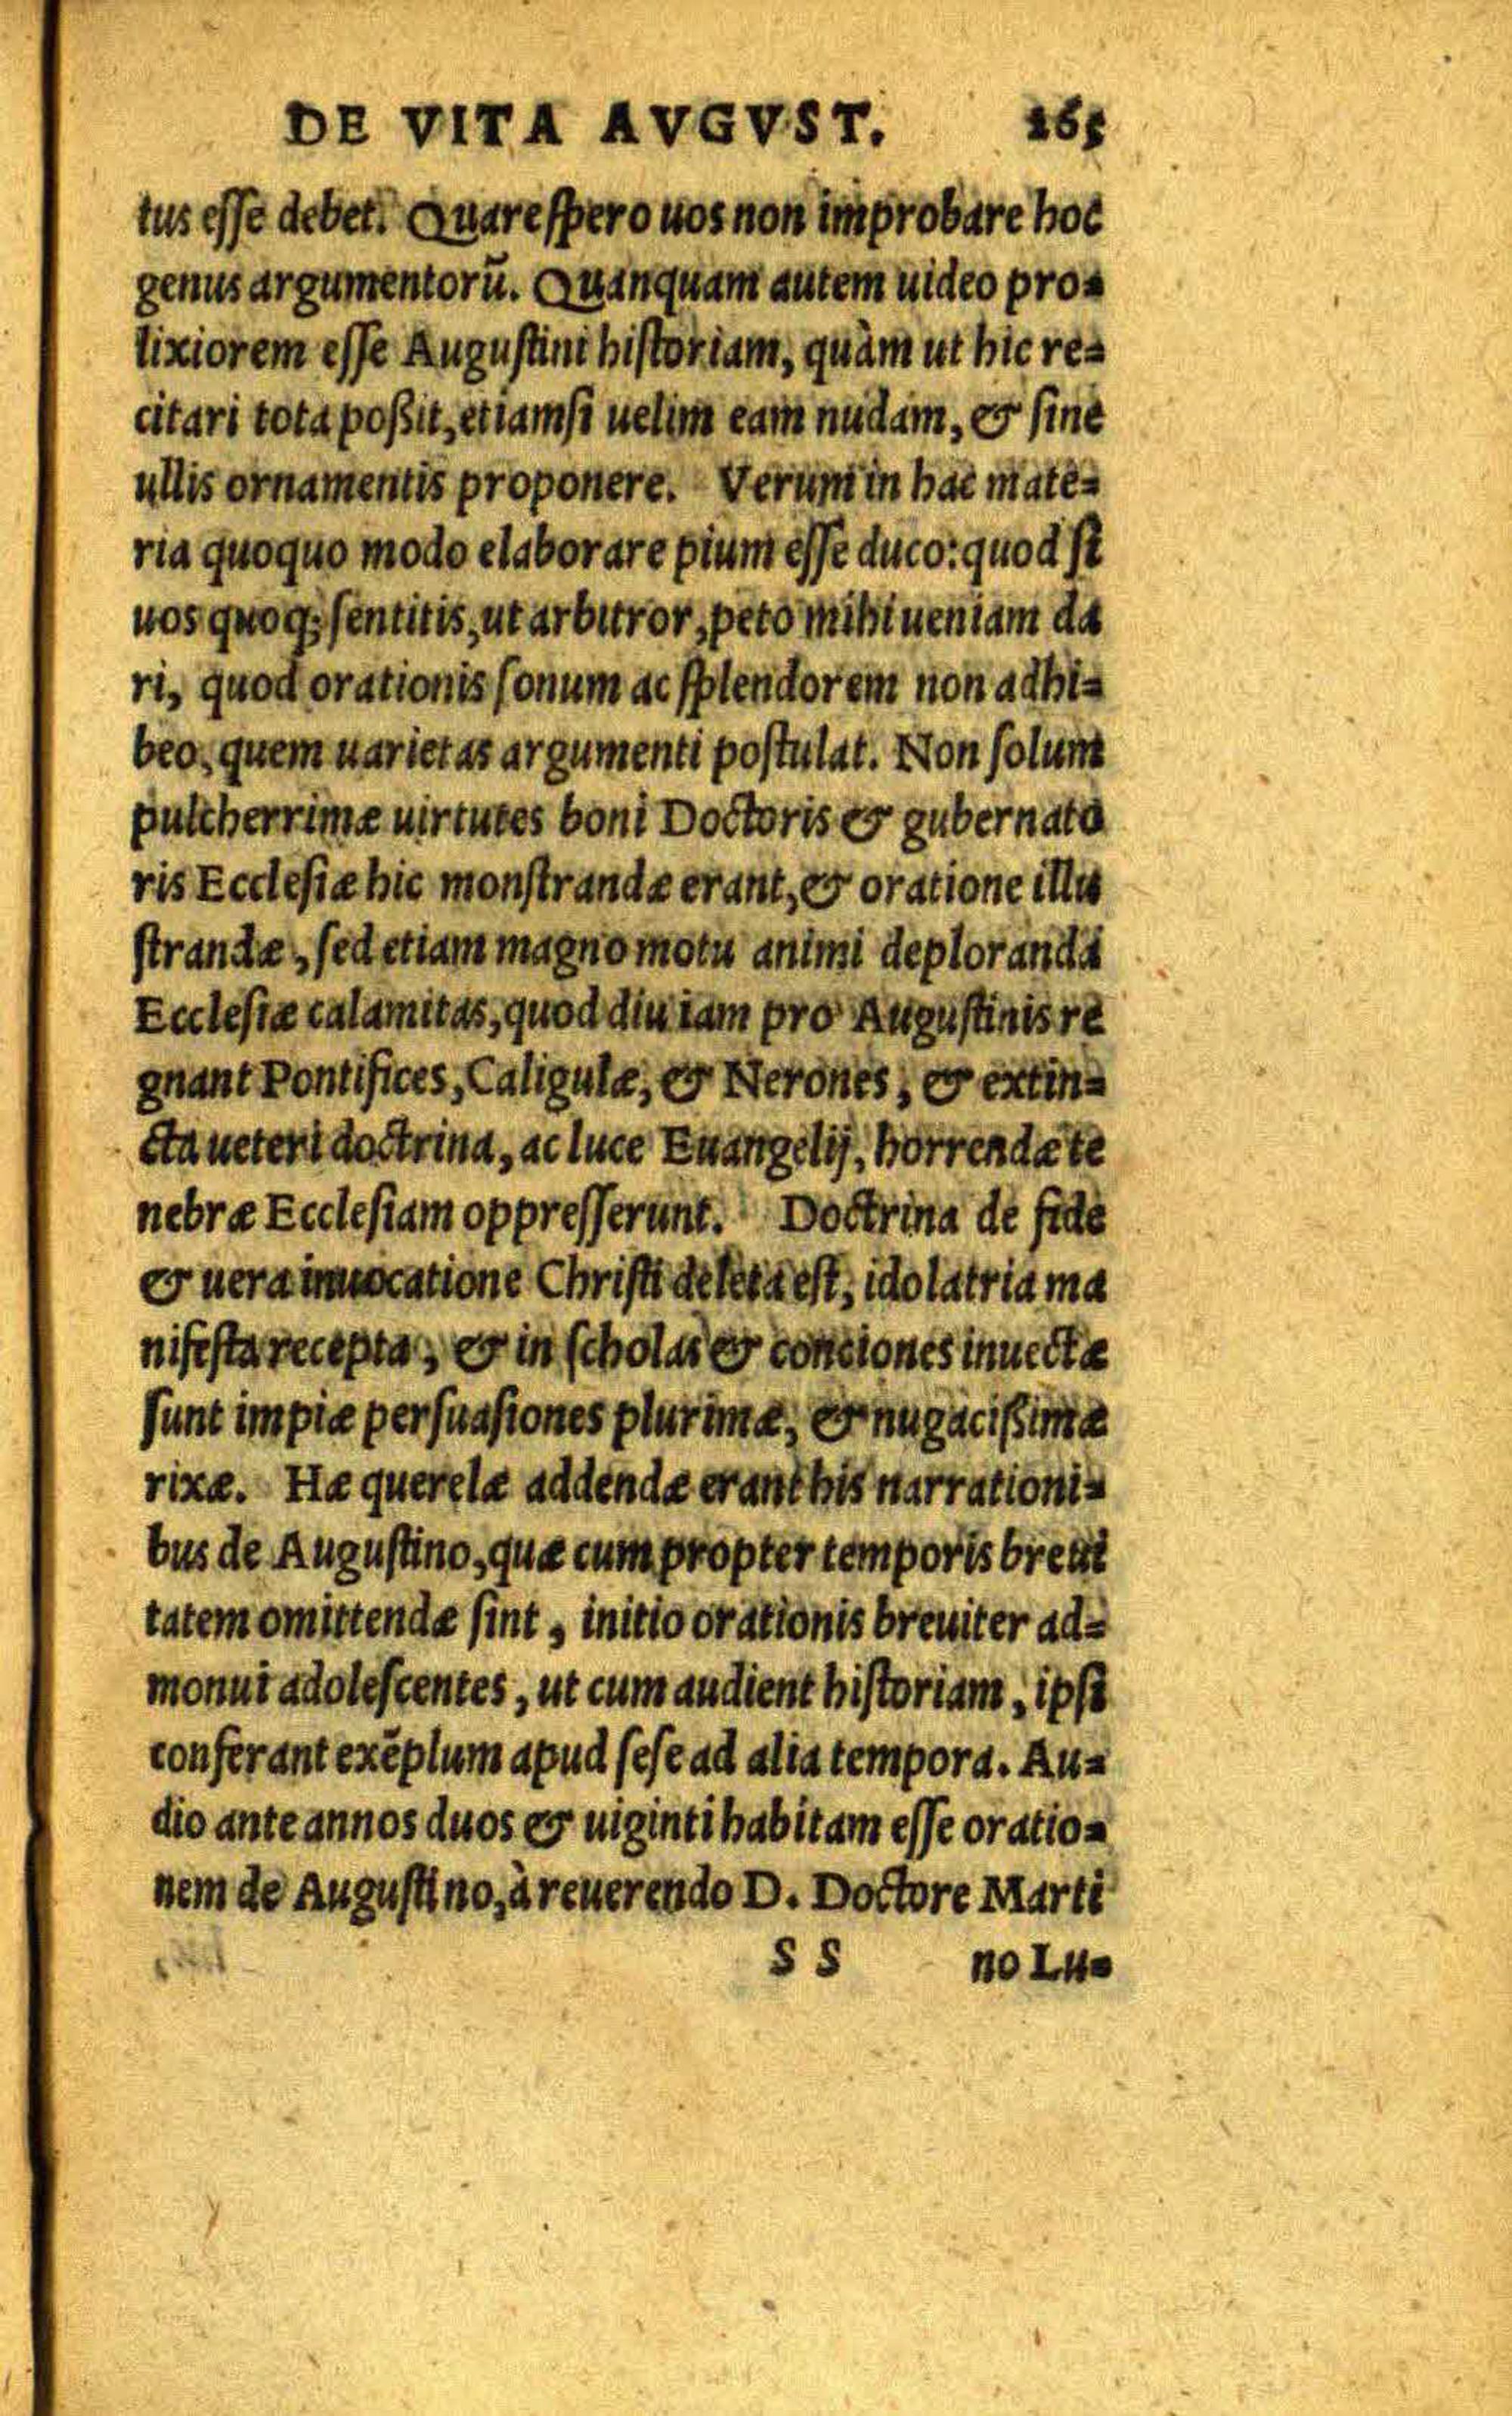 DE VITA AVGVST. 265
tus esse debet. Quare spero uos non improbare hoc
genus argumentorũ. Quanquam autem uideo pro-
lixiorem esse Augustini historiam, quàm ut hic re-
citari tota poßit, etiamsi uelim eam nudam, & sine
ullis ornamentis proponere. Verum in hac mate-
ria quoquo modo elaborare pium esse duco: quod si
uos quoq; sentitis, ut arbitror, peto mihi ueniam da
ri, quod orationis sonum ac splendorem non adhi-
beo, quem uarietas argumenti postulat. Non solum
pulcherrimæ uirtutes boni Doctoris & gubernato
ris Ecclesiæ hic monstrandæ erant, & oratione illu
strandæ, sed etiam magno motu animi deploranda
Ecclesiæ calamitas, quod diu iam pro Augustinis re
gnant Pontifices, Caligulæ, & Nerones, & extin-
cta ueteri doctrina, ac luce Euangelij, horrendæ te
nebræ Ecclesiam oppresserunt. Doctrina de fide
& uera inuocatione Christi deleta est, idolatria ma
nifesta recepta, & in scholas & conciones inuectæ
sunt impiæ persuasiones plurimæ, & nugacißimæ
rixæ. Hæ querelæ addendæ erant his narrationi-
bus de Augustino, quæ cum propter temporis breui
tatem omittendæ sint, initio orationis breuiter ad-
monui adolescentes, ut cum audient historiam, ipsi
conferant exẽplum apud sese ad alia tempora. Au-
dio ante annos duos & uiginti habitam esse oratio-
nem de Augustino, à reuerendo D. Doctore Marti
S S no Lu-